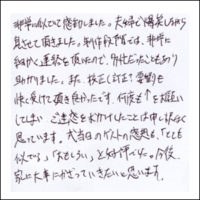 非常に似ていて感動しました。夫婦で爆笑しながら
見させて頂きました。制作段階では、非常に
細かく連絡を頂いたので、外仕だったこともあり
助かりました。又、校正(訂正)変更も
快く受けて頂き良かったです。何度もお願い
してしまい ご迷惑をおかけしたことは申し訳なく
思っています。式当日のゲストの感想も、「とても
似てる」「おもしろい」と好評でした。今後、
家に大事にかざっていきたいと思います。